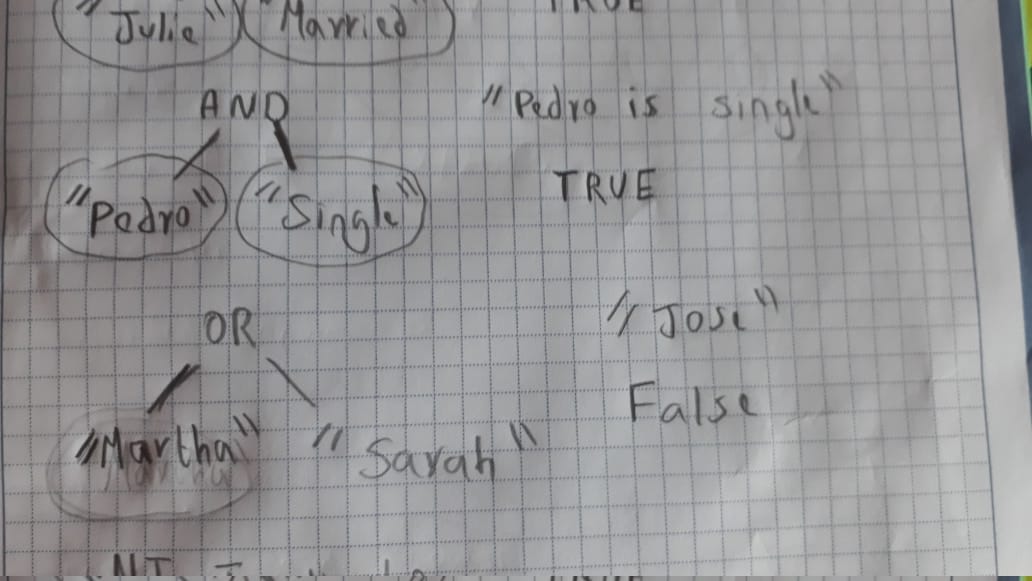 "Julie" "Married" TRUE
AND "Pedro is single"
"Pedro" "Single" TRUE
OR "Jose"
"Martha" "Sarah" False